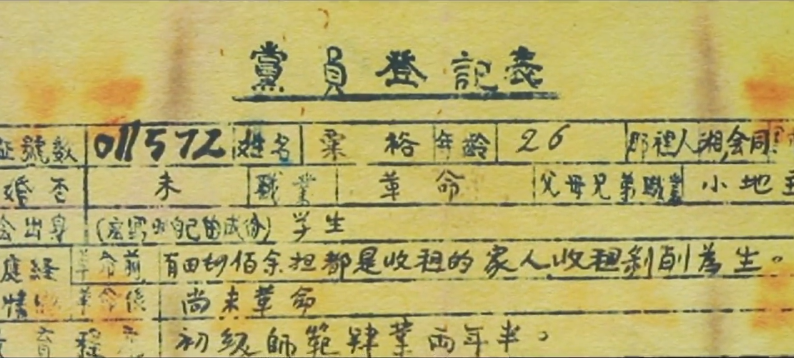 黨員登記表
証號數 011572 姓名 粟裕 年龄 26 那裡人 湘,会同
婚否 未 職業 革命 父母兄弟職業 小地主
会出身 (要写出自己的成份) 学生
革命前 有田 佰余担都是收租的家人收租剝削為生。
革命後 尚未革命
育程 初级師範肄業两年半。